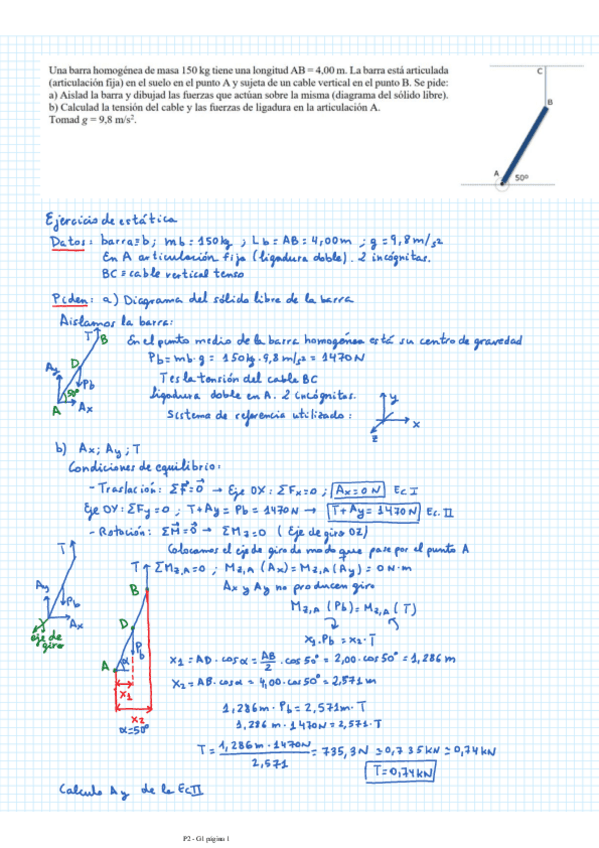 Una barra homogénea de masa 150 kg tiene una longitud AB = 4,00 m. La barra está articulada
(articulación fija) en el suelo en el punto A y sujeta de un cable vertical en el punto B. Se pide:
a) Aislad la barra y dibujad las fuerzas que actúan sobre la misma (diagrama del sólido libre).
b) Calculad la tensión del cable y las fuerzas de ligadura en la articulación A.
Tomad g = 9,8 m/s².
C
B
A
50º
Ejercicio de estática
Datos: barra≡b; mb = 150kg ; Lb = AB = 4,00m ; g = 9,8 m/s2
En A articulación fija (ligadura doble). 2 incógnitas.
BC = cable vertical tenso
Piden: a) Diagrama del sólido libre de la barra
Aislamos la barra:
T B
D
Ay
Pb
50º
A Ax
En el punto medio de la barra homogénea está su centro de gravedad
Pb = mb·g = 150kg·9,8 m/s2 = 1470N
T es la tensión del cable BC
Ligadura doble en A. 2 incógnitas.
Sistema de referencia utilizado:
y
x
z
b) Ax; Ay; T
Condiciones de equilibrio:
- Traslación: ΣF⃗=0⃗ → Eje OX: ΣFx=0; Ax=0N Ec I
Eje OY: ΣFy=0 ; T+Ay = Pb = 1470N → T+Ay= 1470N Ec. II
- Rotación: ΣM⃗=0⃗ → ΣMz=0 (Eje de giro OZ)
Colocamos el eje de giro de modo que pase por el punto A
T
Ay
Pb
Ax
eje de
giro
T
B
D
Pb
A
α
x1
x2
α=50º
ΣMz,A=0 ; Mz,A (Ax)=Mz,A (Ay) = 0N·m
Ax y Ay no producen giro
Mz,A (Pb)=Mz,A (T)
x1·Pb = x2·T
x1 = AD·cosα = AB/2 · cos50º = 2,00·cos50º = 1,286m
x2 = AB·cosα = 4,00·cos50º = 2,571m
1,286m·Pb = 2,571m·T
1,286 m·1470N = 2,571·T
T = 1,286m·1470N / 2,571 = 735,3N ≃ 0,735kN ≃ 0,74kN
T=0,74kN
Calculo Ay de la Ec II
P2 - G1 página 1